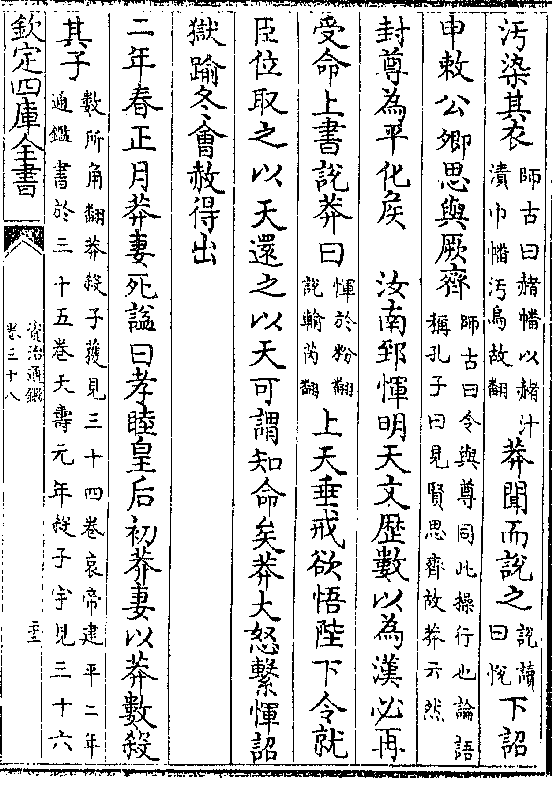 汚染其衣師古曰赭幡以赭汁漬巾幡汚爲故翻莽聞而說之說讀曰悅下詔
申敕公卿思與厥齊師古曰令與尊同此操行也論語稱孔子曰見賢思齊故莽云然
封尊為平化侯　汝南郅惲明天文歷數以為漢必再
受命上書說莽曰惲於粉翻說輸芮翻上天垂戒欲悟陛下令就
臣位取之以天還之以天可謂知命矣莽大怒繫惲詔
獄踰冬會赦得出
二年春正月莽妻死諡曰孝睦皇后初莽妻以莽數殺
其子數所角翻莽殺子獲見三十四卷哀帝建平二年通鑑書於三十五卷天壽元年殺子宇見三十六
欽定四庫全書
資治通鑑
卷三十八
二十三